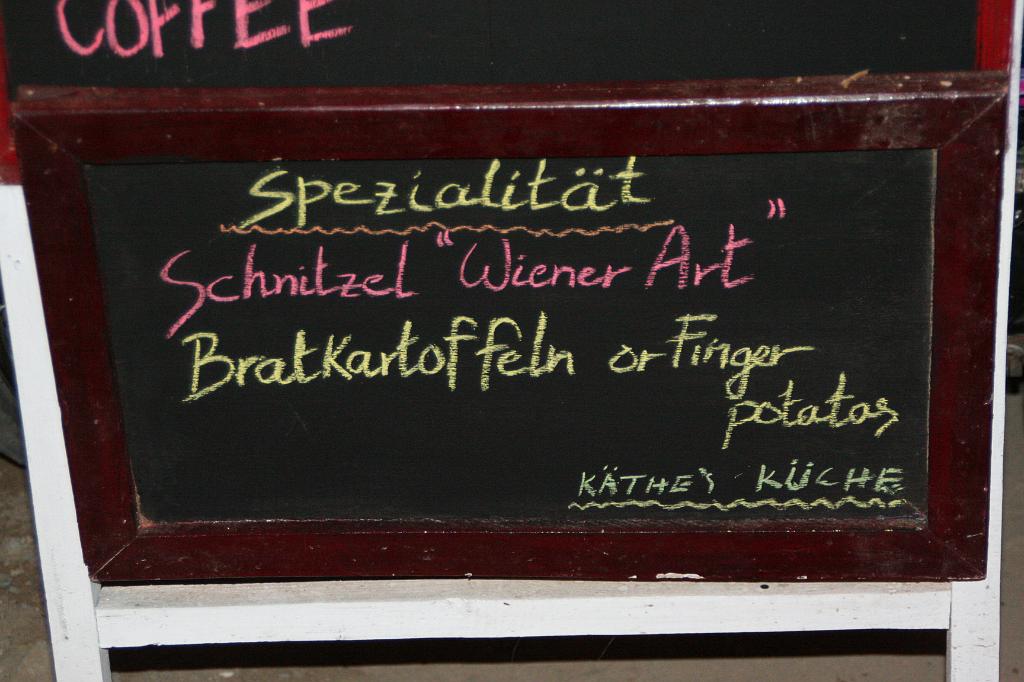 COFFEE
Spezialität
Schnitzel "Wiener Art"
Bratkartoffeln or Finger
potatos
KÄTHE'S KÜCHE